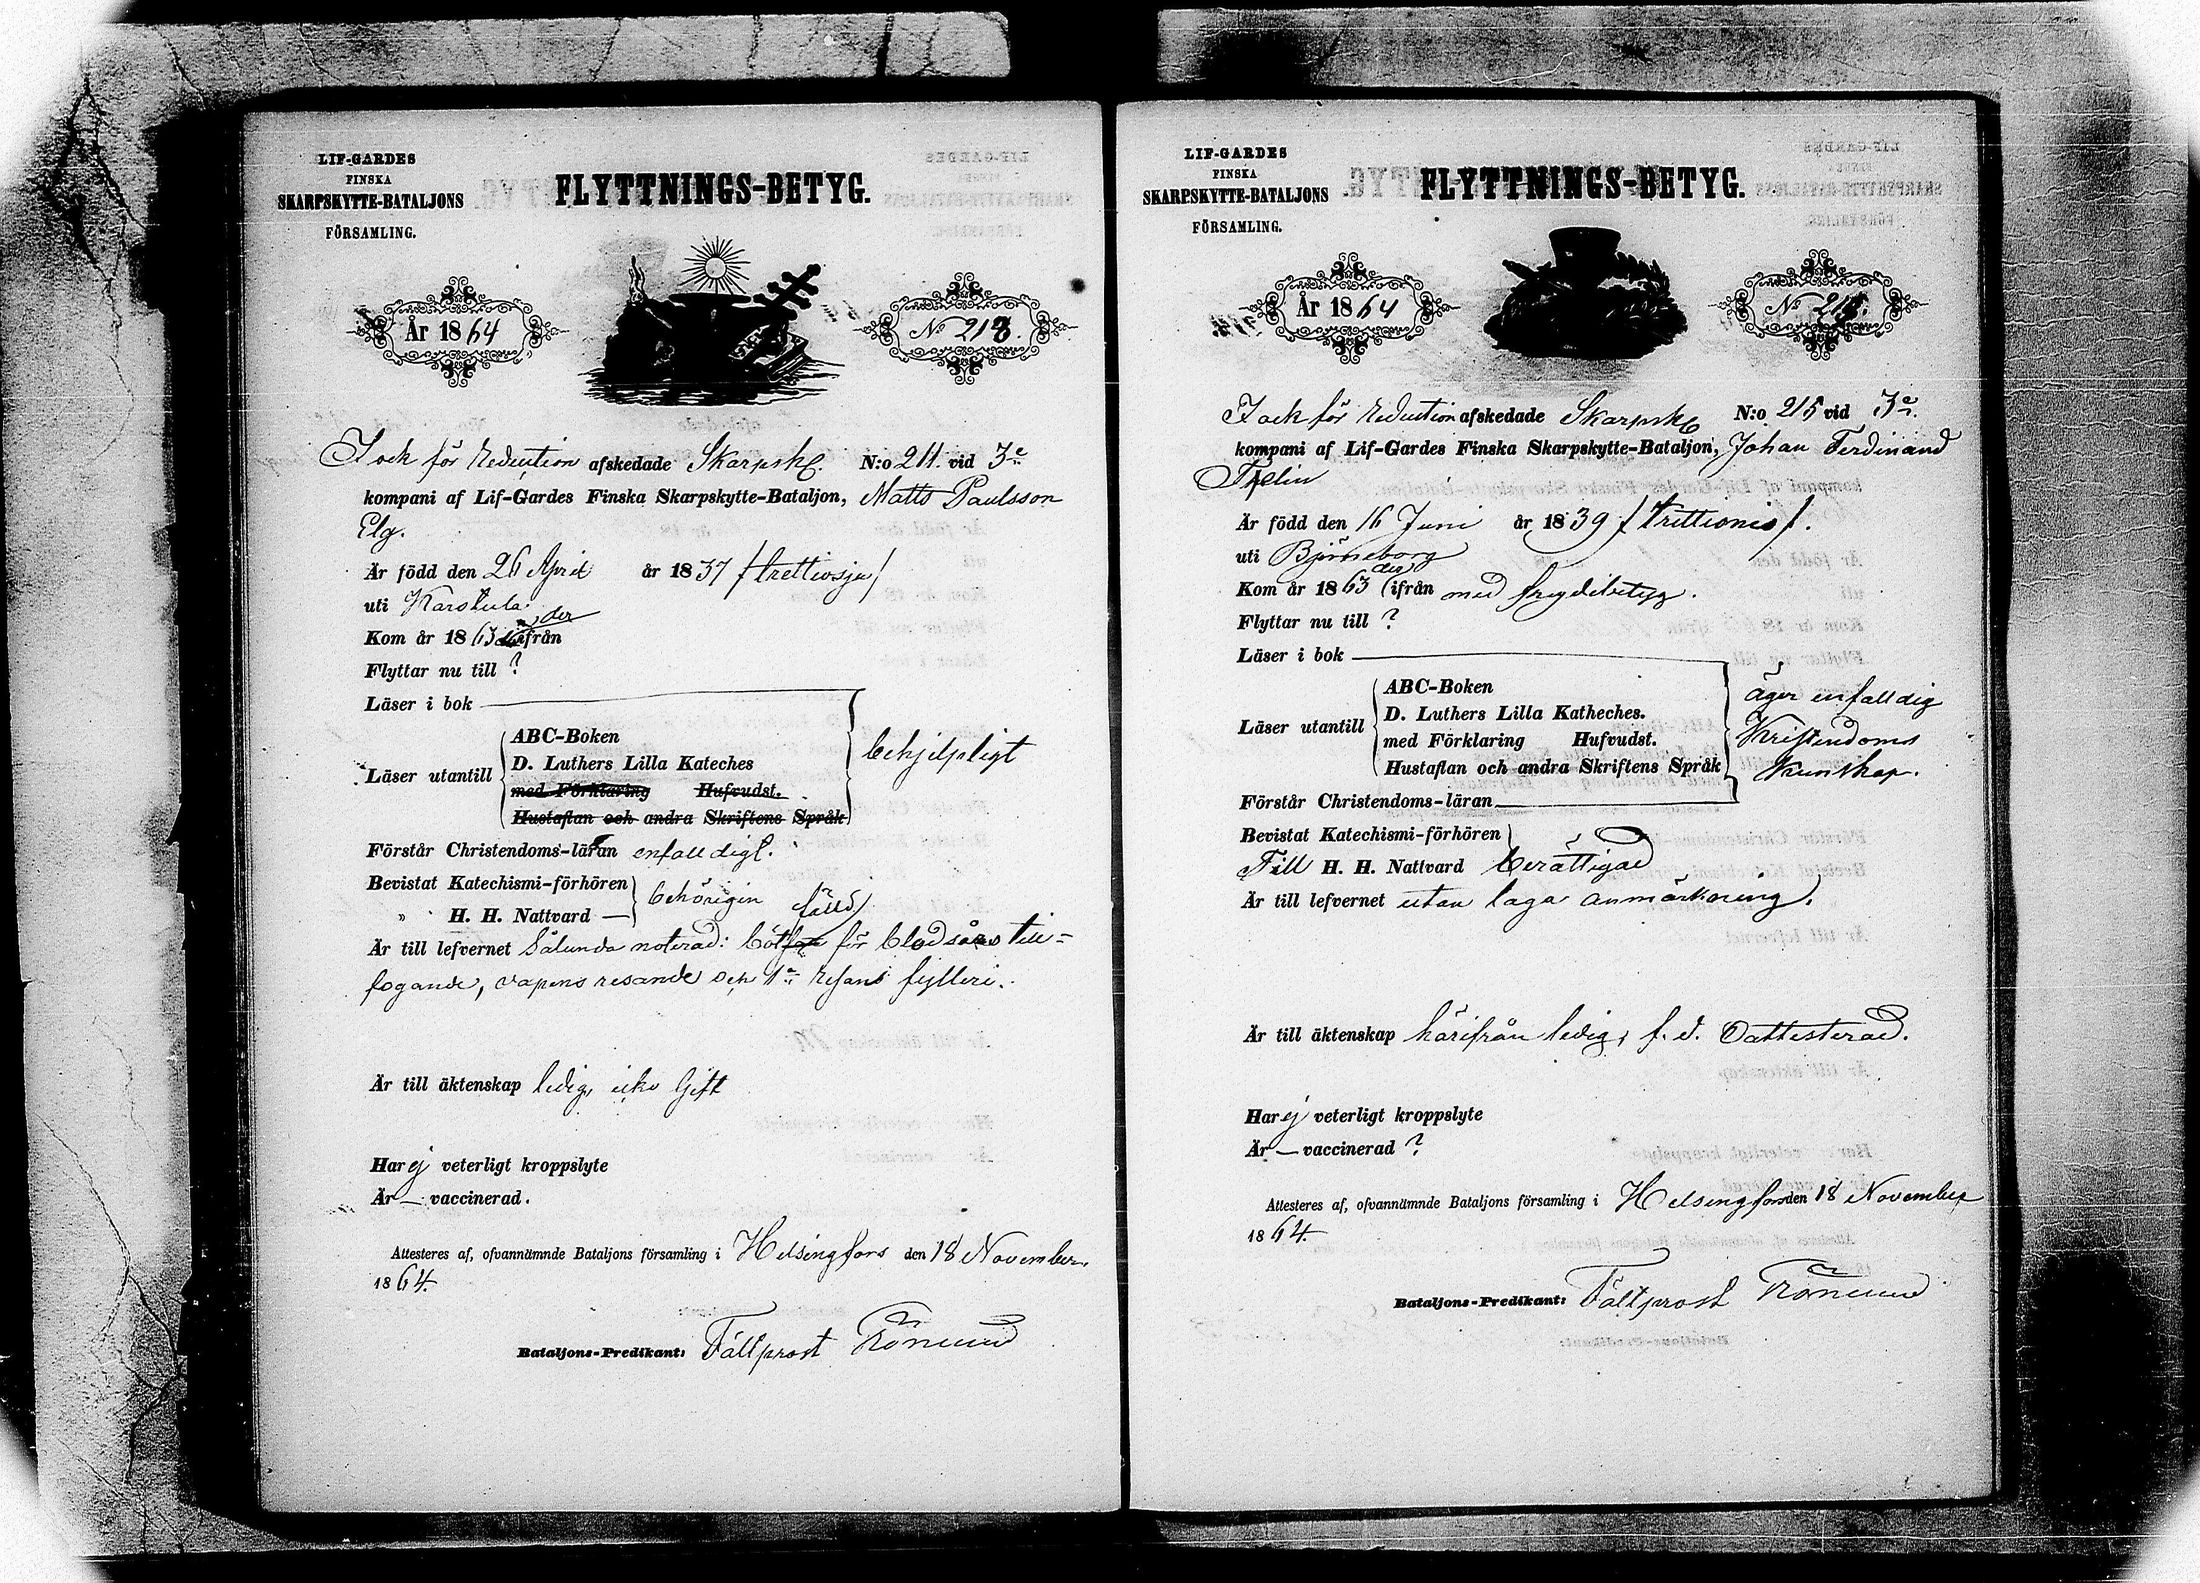 LIF-GARDES
FINSKA
SKARPSKYTTE-BATALJONS
FÖRSAMLING.
FLYTTNINGS-BETYG.
År 1864
No 213.
I och för reduction afskedade Skarpsk. N:o 211. vid 3e
kompani af Lif-Gardes Finska Skarpskytte-Bataljon, Matts Paulsson
Elg.
Är född den 26 April år 1837 /trettiosju/
uti Karstula.
Kom år 1863 der ifrån
Flyttar nu till ?
Läser i bok
Läser utantill
ABC-Boken
D. Luthers Lilla Kateches
med Förklaring Hufvudst.
Hustaflan och andra Skriftens Språk
behjelpligt
Förstår Christendoms-läran enfalldigt.
Bevistat Katechismi-förhören
" H. H. Nattvard
behörigen
Är till lefvernet sålunda noterad: böt fälld för blodsårs till-
fogande, vapens resande och 1a resans fylleri.
Är till äktenskap ledig, icke Gift
Har ej veterligt kroppslyte
Är — vaccinerad.
Attesteres af, ofvannämnde Bataljons församling i Helsingfors den 18 November.
1864.
Bataljons-Predikant: Fältprost
LIF-GARDES
FINSKA
SKARPSKYTTE-BATALJONS
FÖRSAMLING.
FLYTTNINGS-BETYG.
År 1864
No
I och för reduction afskedade Skarpsk. N:o 215 vid 3e
kompani af Lif-Gardes Finska Skarpskytte-Bataljon, Johan Ferdinand
Är född den 16 Juni år 1839 /trettionio/.
uti Björneborg
Kom år 1863 der ifrån med frejdebetyg.
Flyttar nu till ?
Läser i bok
Läser utantill
ABC-Boken
D. Luthers Lilla Katheches.
med Förklaring Hufvudst.
Hustaflan och andra Skriftens Språk
äger enfalldig
Kristendoms
Kunskap.
Förstår Christendoms-läran
Bevistat Katechismi-förhören
Till H. H. Nattvard berättigad
Är till lefvernet utan laga anmärkning.
Är till äktenskap härifrån ledig, f. d. oattesterad.
Har ej veterligt kroppslyte
Är — vaccinerad ?
Attesteres af, ofvannämnde Bataljons församling i Helsingfors den 18 November
1864.
Bataljons-Predikant: Fältprost